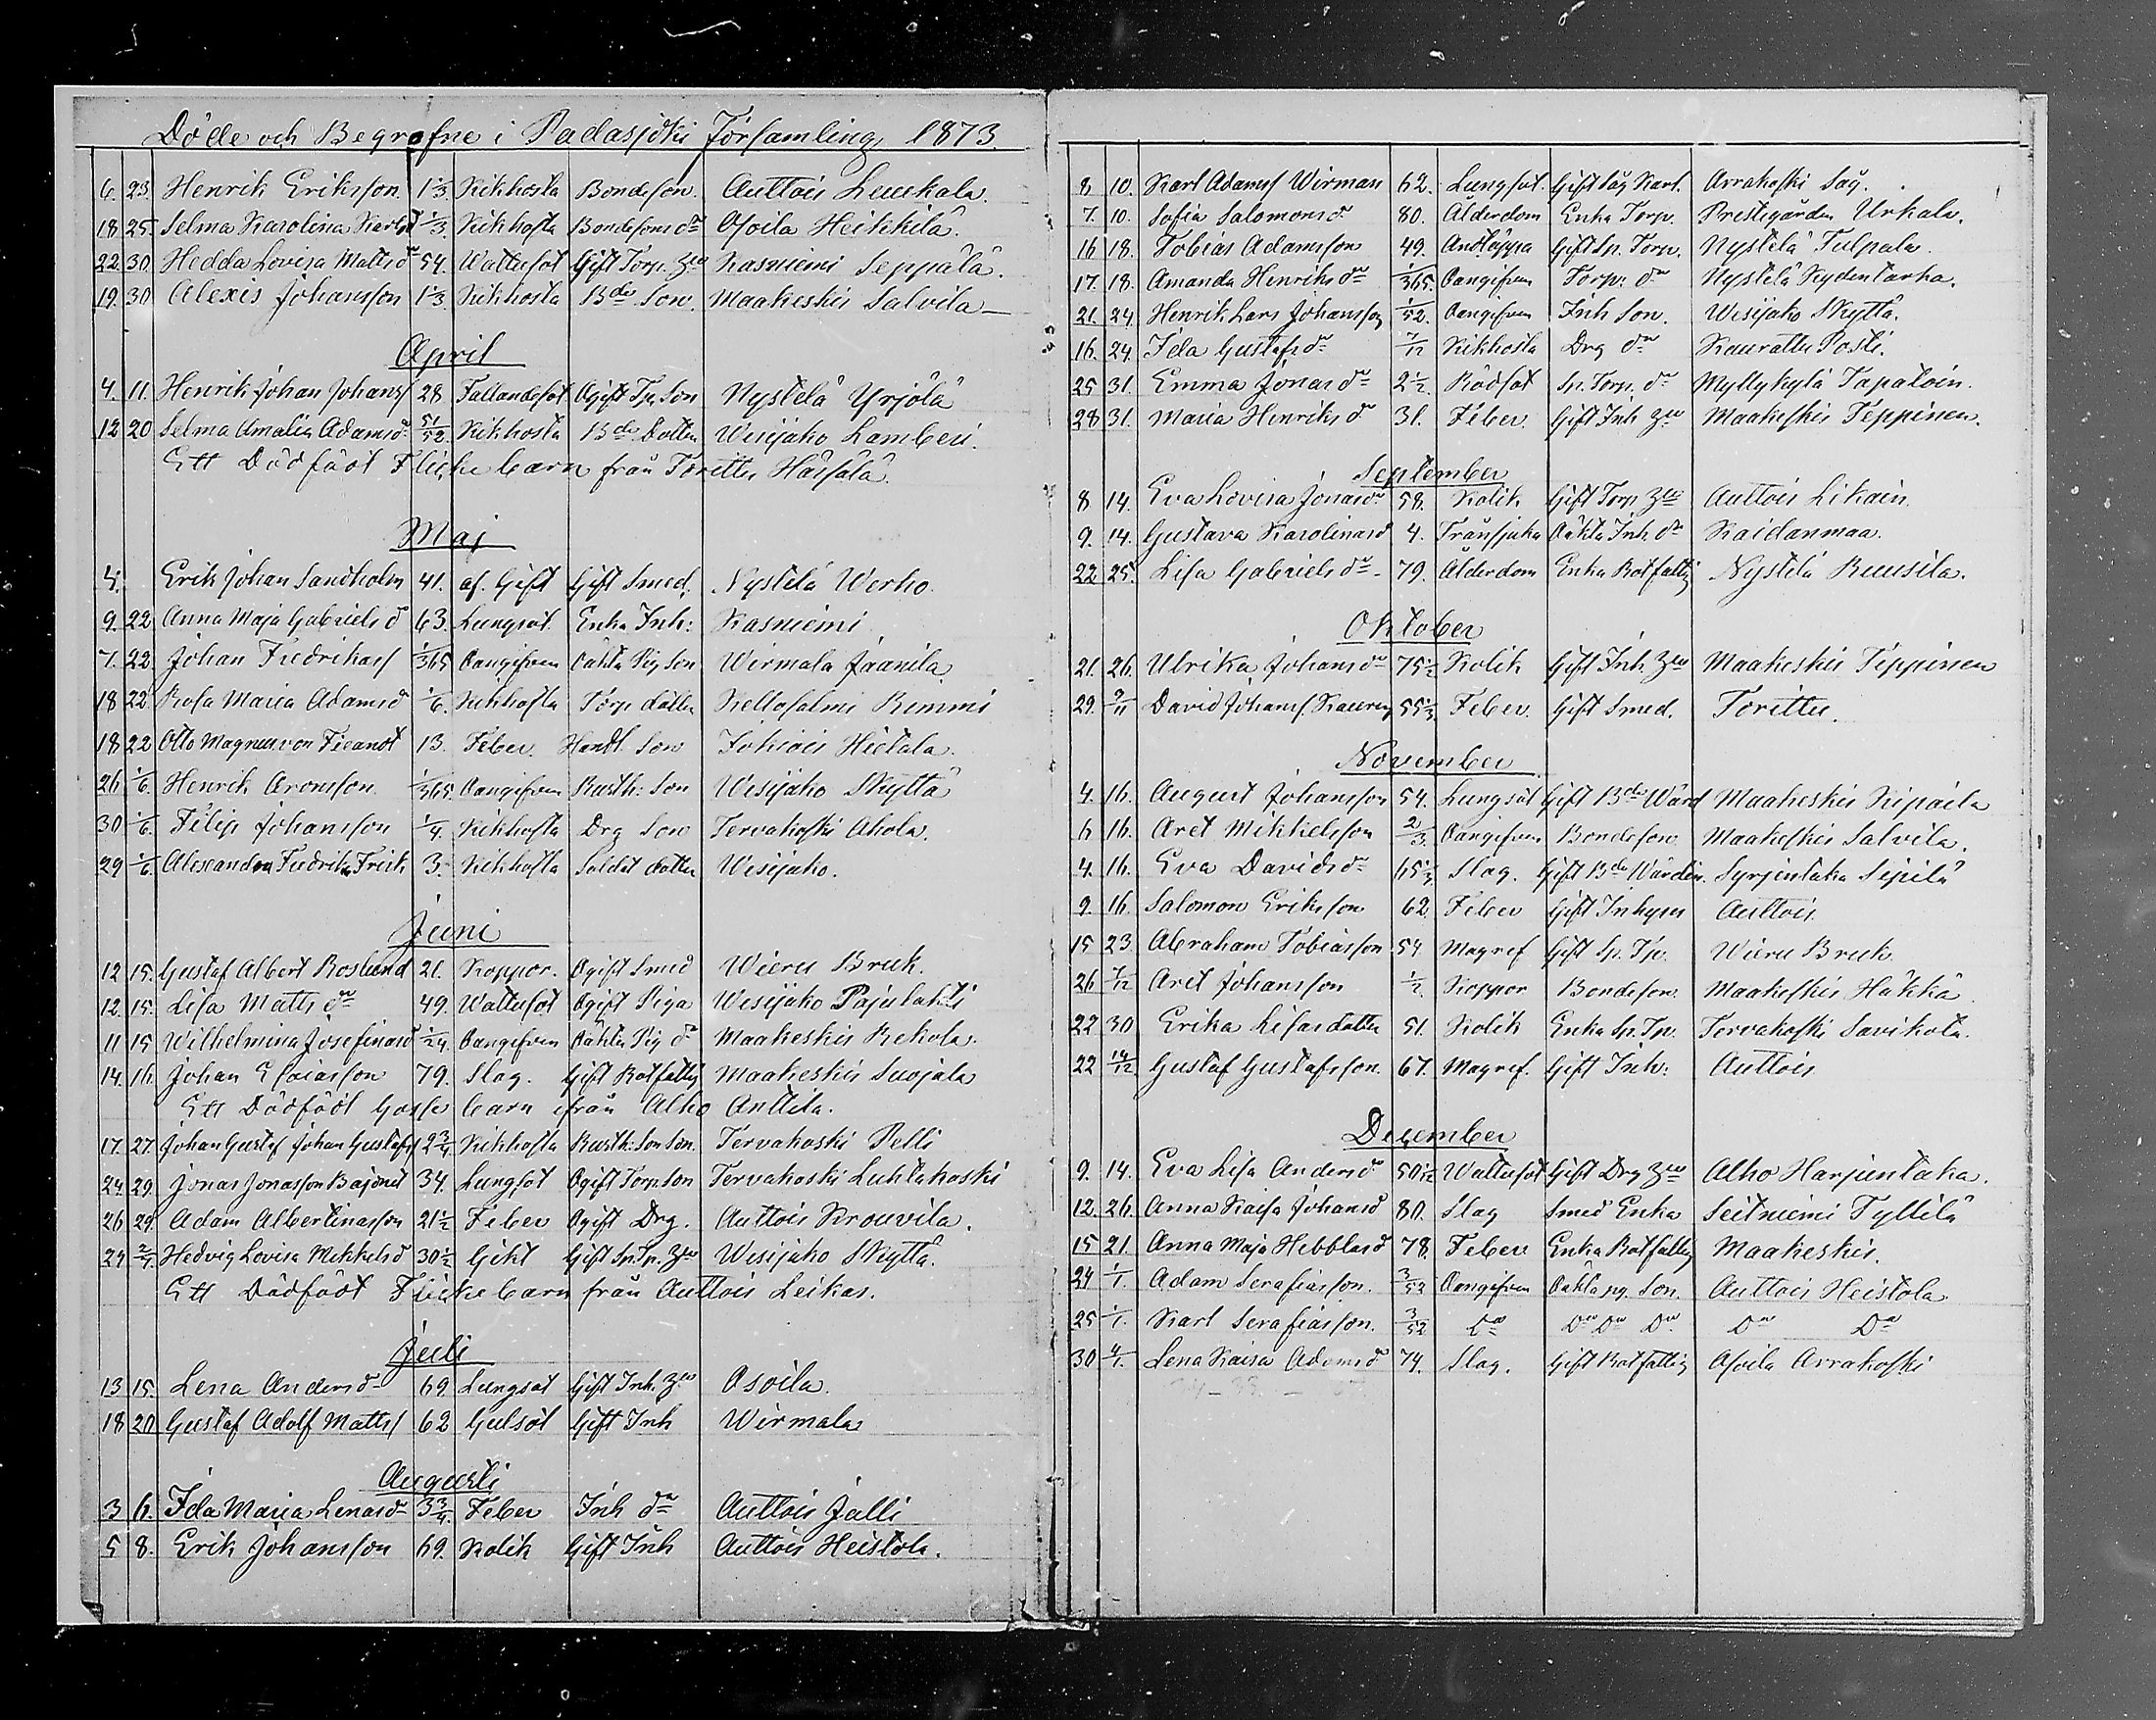 Döde och Begrafne i Padasjoki Församling 1873.
6. 23. Henrik Eriksson. 1 1/3 Kikhosta Bondeson. Auttois Leukala.
18 25. Selma Karolina Karlsd 1/3. Kikhosta Bondesons dr Osoila Heikkilä.
22. 30. Hedda Lovisa Mattsdr 54. Wattusot Gift Torp. Hu Kasniemi Seppälä.
19. 30 Alexis Johansson 1 1/3. Kikhosta Bde Son. Maakeskis Salvila
April
4. 11. Henrik Johan Johans 28 Fallandesot Ogift Tp. Son Nystelä Yrjölä
12 20 Selma Amalia Adamsdr 51/52. Kikhosta Bde Dotter Wesijako Lamberi.
Ett Dödfödt Flicke barn från Torittu Hassala.
Maj
4. Erik Johan Sandholm 41. af. Gift Gift Smed. Nystelä Werho.
9. 22. Anna Maja Gabrielsd 63. Lungsot Enka Inh: Kasniemi
7. 22. Johan Fredrikas 1/365 Oangifven Oäkta Pig Son Wirmala Jaanila
18 22 Rosa Maria Adamsd 1/6. Kikhosta Torp dotter Kellosalmi Rimmi
18 22 Otto Magnus von Fieandt 13. Feber. Handl. Son Johiois Hietala.
26 1/6. Henrik Aronsson 1/365. Oangifven Rusth: Son Wesijako Skyttä
30 1/6. Filip Johansson 1/4. Kikhosta Drg Son Tervakoski Ahola.
29 1/6. Alexandra Fredrika Frisk 3. Kikhosta Soldat dotter Wesijako.
Juni
12 15. Gustaf Albert Roslund 21. Koppor. Ogift Smed Wieru Bruk.
12. 15. Lisa Mattsdr 49. Wattusot Ogift Piga Wesijako Pajulahti
11 15 Wilhelmina Josefinasd 1/24. Oangifven Oäkta Pig dr Maakeskis Rekola.
14. 16. Johan Esaiasson 79. Slag. Gift Rotfattig Maakeskis Suojala
Ett Dödfödt Gosse barn ifrån Alho Anttila.
17. 27. Johan Gustaf Johan Gustafs 2 3/4. Kikhosta Rusth: Son Son. Tervakoski Pelli
24. 29. Jonas Jonasson Bajonet 34. Lungsot Ogift Torp. Son Tervakoski Luhtakoski
26 29. Adam Albertinasson 21 1/2 Feber Ogift Drg. Auttois Krouvila.
29 2/7. Hedvig Lovisa Mikkelsd 30 1/2 Gikt Gift Sp. Tp. Hu Wesijako Skyttä.
Ett Dödfödt Flicke barn från Auttois Leikas.
Juli
13 15. Lena Andersdr 69 Lungsot Gift Inh. Hu Osoila.
18 20 Gustaf Adolf Matts 62 Gulsot Gift Inh Wirmala
Augusti
3 6. Ida Maria Lenasdr 3 3/4. Feber Inh dr Auttois Jalli
5 8. Erik Johansson 69. Kolik Gift Inh Auttois Heistola.
8 10. Karl Adams Wirman 62. Lungsot. Gift Såg Karl. Arrakoski Såg.
7. 10. Sofia Salomonsdr 80. Ålderdom Enka Torp. Prestgården Urkala.
16 18. Tobias Adamsson 49. Andtäppa Gift Sp. Torp. Nystelä Tulpala.
17. 18. Amanda Henriksdr 1/365. Oangifven Torp. dr Nystelä Kydentarha.
21. 24. Henrik Lars Johansson 1/52. Oangifven Inh Son. Wesijako Skyttä.
16. 24. Ida Gustafsdr 7/12 Kikhosta Drg dr Kaurattu Posti.
25 31. Emma Jonasdr 2 1/2. Rödsot Sp. Torp. dr Myllykylä Tapatoin.
28 31. Maria Henriksdr 31. Feber. Gift Inh Hu Maakeskis Teppinen.
September
8 14. Eva Lovisa Jonasdr 58. Kolik Gift Torp Hu Auttois Likain.
9. 14. Gustava Karolinasd 4. Trånsjuka Oäkta Inh dr Kaidanmaa.
22 25. Lisa Gabrielsdr 79. Ålderdom Enka Rotfattig Nystelä Ruusila.
Oktober
21. 26. Ulrika Johansdr 75 1/2 Kolik Gift Inh Hu Maakeskis Teppinen
29. 2/11 David Johans. 55 1/3. Feber. Gift Smed. Torittu.
November
4. 16. August Johansson 54. Lungsot Gift Bde Wärd Maakeskis Kipaila
6 16. Aret Mikkelsson 2/3. Oangifven Bondeson Maakeskis Salvila.
4. 16. Eva Davidsdr 65 1/3. Slag. Gift Bde Wärdin. Syrjentaka Sipilä
9. 16. Salomon Eriksson 62. Feber Gift Inhyses Auttois
15 23. Abraham Tobiasson 54 Magref Gift Sp. Tp. Wieru Bruk
26 7/12 Aret Johansson 1/2. Koppor Bondeson. Maakeskis Häkkä
22 30 Erika Lisasdotter 51. Kolik Enka Sp. Tp. Tervakoski Savikota.
22 14/12. Gustaf Gustafsson. 67. Magref. Gift Inh: Auttois
December
9. 14. Eva Lisa Andersdr 50 1/12 Wattusot Gift Drg Hu Alho Harjuntaka.
12. 26. Anna Kaisa Johansd 80. Slag Smed Enka Seitniemi Tyllilä
15 21. Anna Maja Hebblasd 78. Feber Enka Rotfattig Maakeskis.
24 1/1. Adam Serafiasson. 3/52 Oangifven Oäkta pg. Son. Auttois Heistola
25 1/1. Karl Serafiasson. 3/52 Do Do Do Do Do Do
30 4/1. Lena Kaisa Adamsd 74. Slag. Gift Rotfattig Osoila Arrakoski